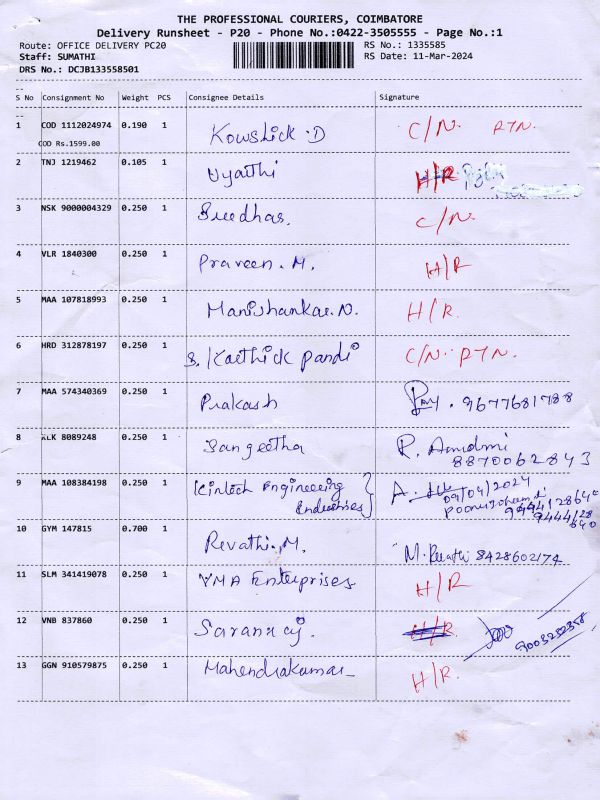 THE PROFESSIONAL COURIERS, COIMBATORE
Delivery Runsheet - P20 - Phone No.:0422-3505555 - Page No.:1
Route: OFFICE DELIVERY PC20 RS No.: 1335585
Staff: SUMATHI RS Date: 11-Mar-2024
DRS No.: DCJB133558501
S No Consignment No Weight PCS Consignee Details Signature
1 COD 1112024974 0.190 1 Kowshick.D C/N. RTN.
COD Rs.1599.00
2 TNJ 1219462 0.105 1 H/R
3 NSK 9000004329 0.250 1 Sreedhar. C/N.
4 VLR 1840300 0.250 1 Praveen.M. H/R
5 MAA 107818993 0.250 1 Manishankar.N. H/R.
6 HRD 312878197 0.250 1 S. Karthick pandi C/N. RTN.
7 MAA 574340369 0.250 1 Prakash 9677681788
8 KLK 8089248 0.250 1 Sangeetha R.
8870062843
9 MAA 108384198 0.250 1 Kintech Engineering A.
Industries 09/04/2024
10 GYM 147815 0.700 1 Revathi.M. M. Revathi 8428602174
11 SLM 341419078 0.250 1 VMA Enterprises H/R
12 VNB 837860 0.250 1 Saranraj. H/R.
13 GGN 910579875 0.250 1 Mahendrakumar H/R.